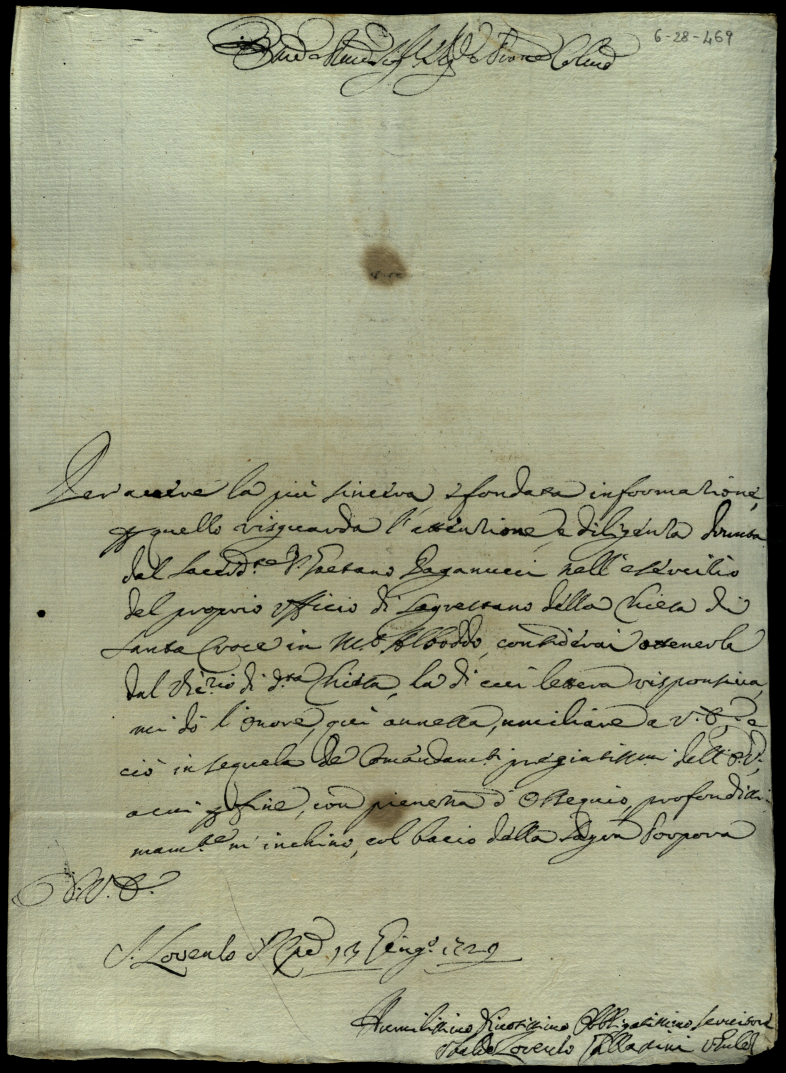 6-28-469
Per avere la più sincera, e fondata informatione,
quello risguarda l'attentione, e diligenza
dal Sacerd.te Gaetano Paganucci nell'esercitio
del proprio ufficio di Sagrestano della Chiesa di
Santa Croce in M.te Alboddo, considerai ottenerla
dal Vic.rio di d.ta Chiesa, la di cui lettera responsiva,
mi dò l'onore, qui annessa, umiliare a V. E., e
ciò in sequela de Comandam.ti pregiatissimi dell'E. V.,
a cui fine, con pienezza d'Ossequio, profondissi-
mam.te m'inchino, col bacio della Sagra Porpora
D. V. E.
S. Lorenzo 13 Giug.o 1729
Humilissimo Divotissimo Obbligatissimo Servitore
Lorenzo Palladini